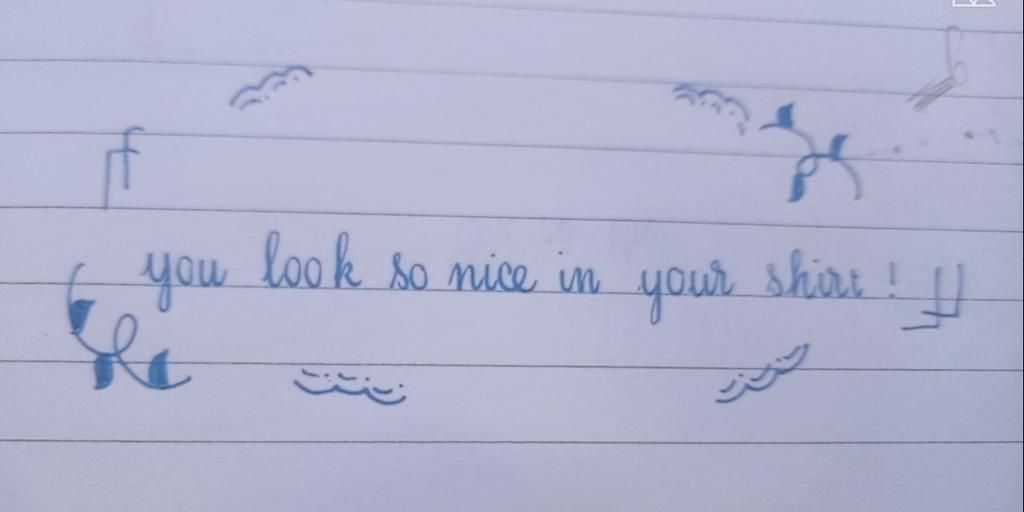 you look so nice in your shirt!